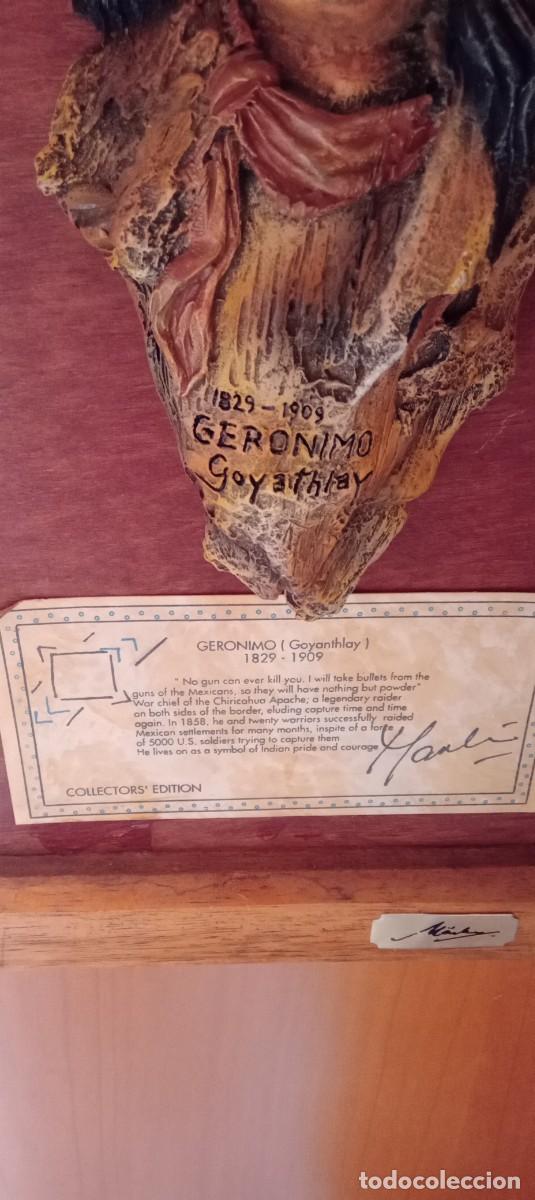 1829 - 1909
GERONIMO
Goyathlay
GERONIMO ( Goyanthlay )
1829 - 1909
" No gun can ever kill you. I will take bullets from the
guns of the Mexicans, so they will have nothing but powder"
War chief of the Chiricahua Apache; a legendary raider
on both sides of the border, eluding capture time and time
again. In 1858, he and twenty warriors successfully raided
Mexican settlements for many months, inspite of a force
of 5000 U.S. soldiers trying to capture them
He lives on as a symbol of Indian pride and courage
COLLECTORS' EDITION
todocoleccion